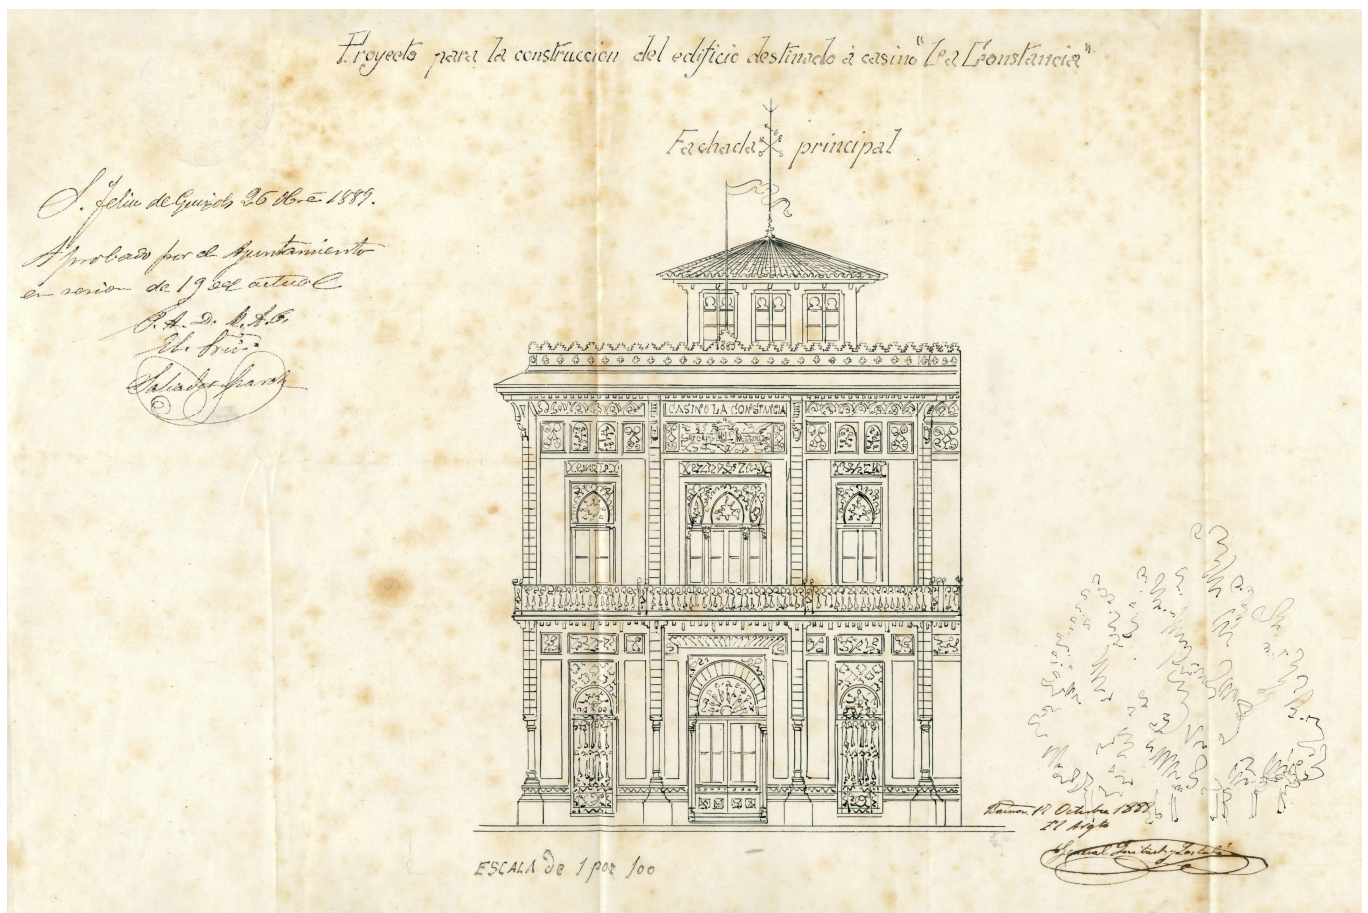 Proyecto para la construccion del edificio destinado á casino "La Constancia".
Fachada principal
S. Feliu de Guixols 26 Obre 1889.
Aprobado por el Ayuntamiento
en sesion de 19 del actual
P. A. D. M. A. C.
El Srio
Salvador
1889
CASINO LA CONSTANCIA
17 Octubre 188
El Arqto
General Guitart y Lostaló
ESCALA de 1 por 100